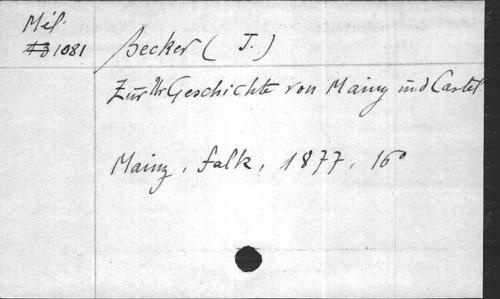 Mél.
1081
Becker ( J. )
Zur Ur Geschichte von Mainz und Castel
Mainz, Falk, 1877, 16°